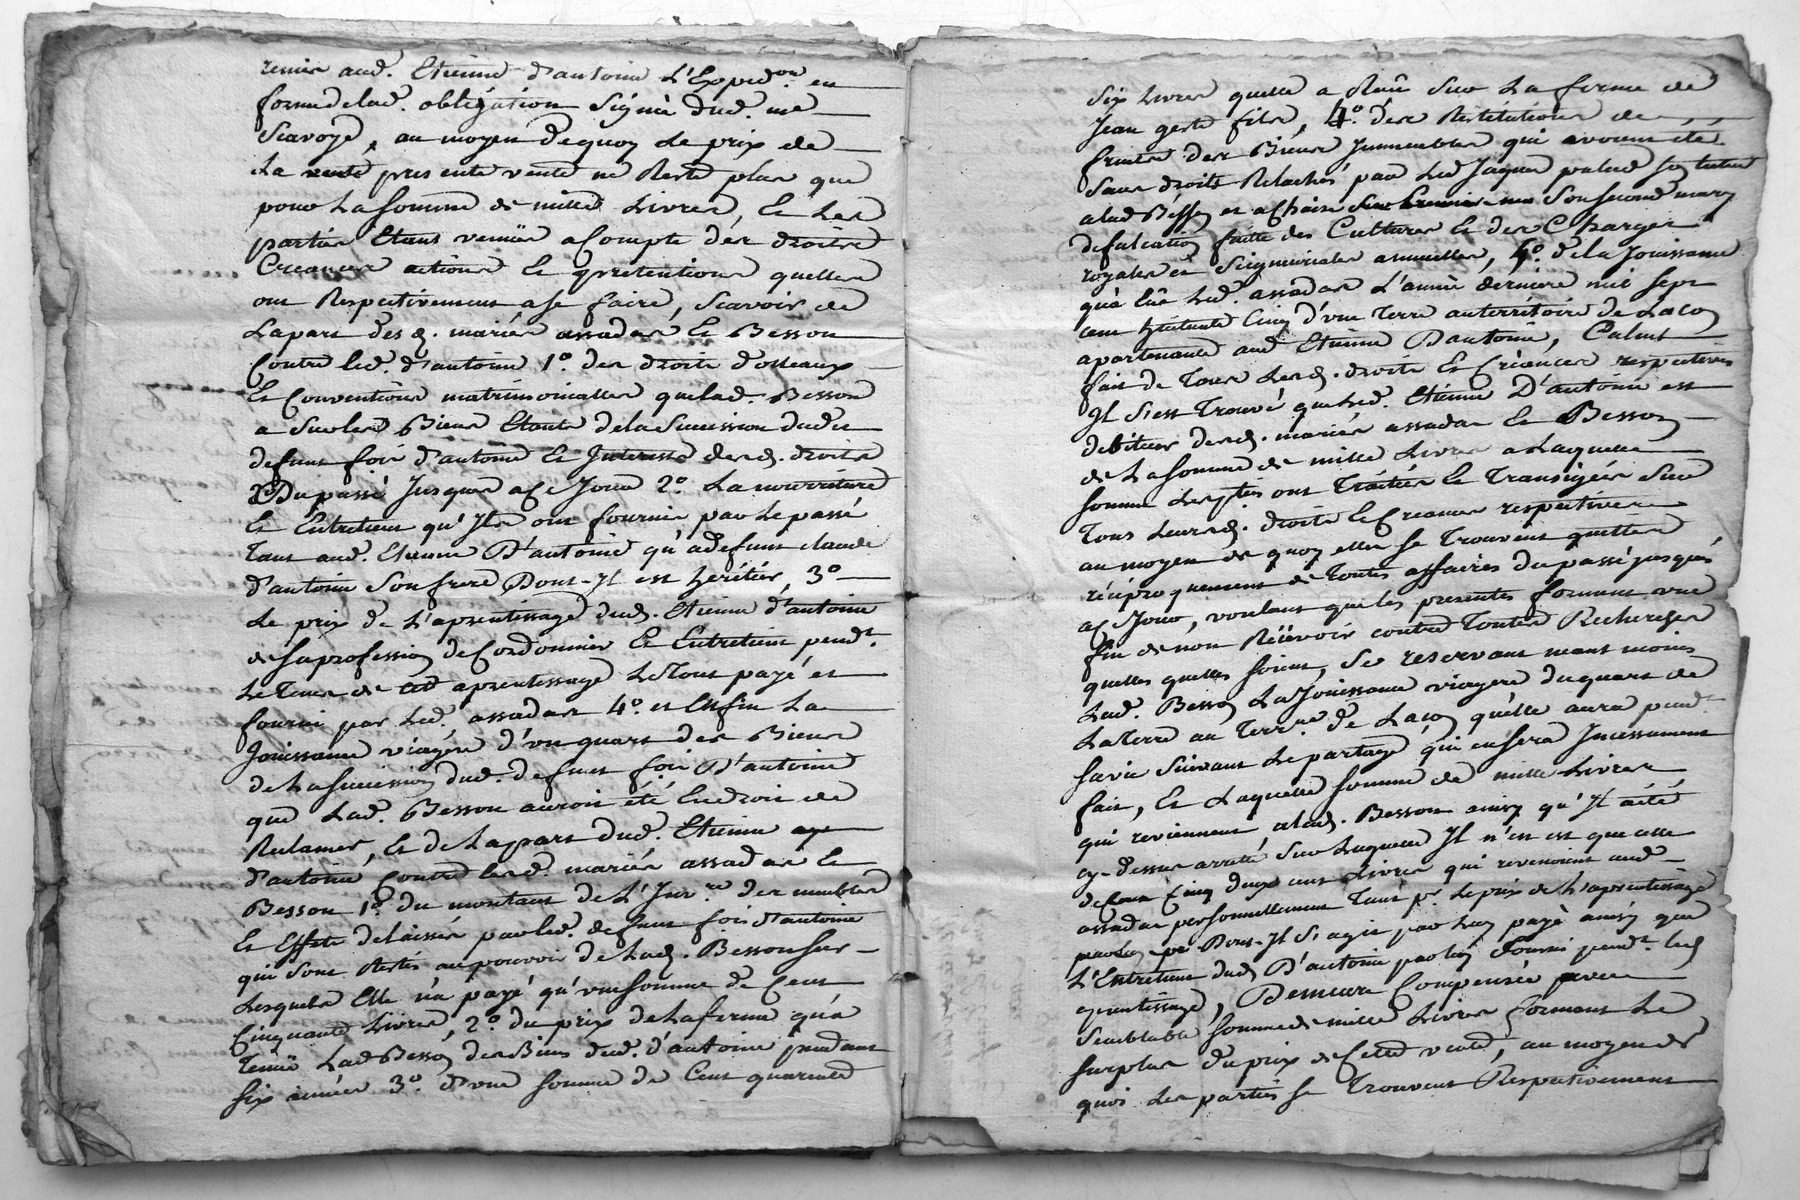 remis aud. Etienne d'antoine L'Expedon. en
forme delad. obligation signée dud. me
Scavoye, au moyen dequoy Le prix de
La presente vente ne Reste plus que
pour La somme de mille Livres, Et Les
parties Etans venües a Compte des droits
Creances actions Et pretentions quelles
ont Respectivement a se faire, Scavoir de
Lapart desd. mariés assadas Et Besson
Contre led. d'antoine 1o. des droits d'osteaux
Et Conventions matrimonialles quelad. Besson
a Surles Biens Etants delaSuccession dudit
defunt foix d'antoine Et Interests desd. droits
Dupassé Jusques a Ce Jour 2o. La nourriture
Et Entretien qu'Ils ont fournis par Le passé
Tant aud. Etienne D'antoine qu'a defunt claude
d'antoine Son frere Dont-Il est heritier, 3o
Le prix de L'aprentissage dud. Etienne d'antoine
de Saprofession de Cordonnier Et Entretien pendt.
Le Tems de aprentissage Le Tout payé et
fourni par Led. assadas 4o. et Enfin La
Jouissance viagere d'un quart des Biens
de La succession dud. defunt foix D'antoine
que Lad. Besson auroit été Endroit de
Reclamer, Et de Lapart dud. Etienne
d'antoine Contre lesd. mariés assadas Et
Besson 1o. du montant de L'Invre. des meubles
Et Effets délaissés par led. defunt foix d'antoine
qui sont Restés aupouvoir de Lad. Besson sur
Lesquels Elle n'a payé qu'une somme de Cent
Cinquante Livres, 2o. du prix de La ferme qu'a
Tenüe Lad Besson des Biens dud. d'antoine pendant
Six années 3o. d'une somme de Cent quarante
Six Livres quelle a Reüe Sur La ferme de
Jean geste fils, 4o. des Restitutions de
fruits des Biens Immeubles qui avoient eté
Sans droits Relachés par Led Jaques
a lad Besson et Son second mary
defalcation faitte des Cultures Et des Charges
royales et Seigneuriales annuelles, 5o. de la Jouissance
qu'a Eüe Led. assadas L'année derniere mil sept
cent Cinq d'une Terre auterritoire de
apartenante aud Etienne Dantoine, Calcul
fait de Tous Lesd. droits Et Créances respectives
Il S'est Trouvé queLed. Etienne D'antoine est
debiteur desd. mariés assadas Et Besson
de La Somme de mille Livres a Laquelle
Somme Les pties ont Traitées Et Transigées Sur
Tous Leursd. droits Et Creances respectives
au moyen de quoy elles se Trouvent quittes
réciproquement de Toutes affaires du passé jusqués
a Ce Jour, voulant que les presentes forment une
fin de non Reçevoir contre Toutes Recherches
quelles quelles soient, Se reservant neant moins
Lad. Besson La Jouissance viagere du quart de
La Terre au Terre. de qu'elle aura pendt.
Sa vie Suivant Le partage qui ensera Incessament
fait, Et Laquelle somme de mille Livres
qui reviennent alad. Besson ainsy qu'Il a eté
cy-dessus arreté Sur Laquelle Il n'en est que celle
de deux cent Livres qui revenoient aud
assadas personnellement Tant pr. Le prix de L'aprentissage
Dont-Il S'agit par Luy payé ainsy que
L'Entretien dud D'antoine par luy fourni pendt. led
aprentissage, Demeure Compensée avec
Semblable somme de mille Livres formant Le
Surplus du prix de Cette vente, au moyen de
quoi Les parties Se Trouvent Respectivement